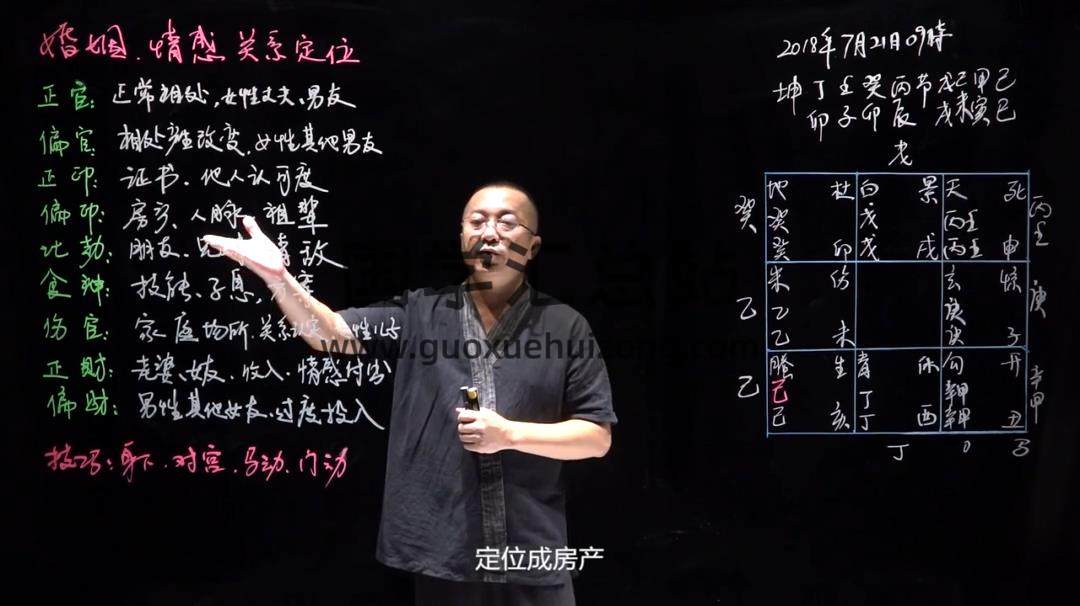 婚姻、情感关系定位
正官：正常相处，女性丈夫、男友
偏官：相处产生改变，女性其他男友
正印：证书、他人认可度
偏印：房产、人脉、祖辈
比劫：朋友、情敌
食神：技能、子息，
伤官：家庭场所、关系
正财：老婆、女友、收入、情感付出
偏财：男性其他女友、过度投入
技巧：身下、对宫、马动、门动
2018年7月21日09時
坤 丁 壬 癸 丙 节 戊 己 甲 己
卯 子 卯 辰 戊 未 寅 巳
地 杜 白 景 天 死
癸 癸 戊 丙壬 丙壬
癸 卯 戊 戌 丙壬 申
朱 伤 玄 惊
乙 乙 庚 庚
乙 未 庚 子
腾 生 青 休 勾 开
乙 己 丁 辛甲 辛甲
己 亥 丁 酉 辛甲 丑
丁 0
www.guoxuehuizong.com
定位成房产